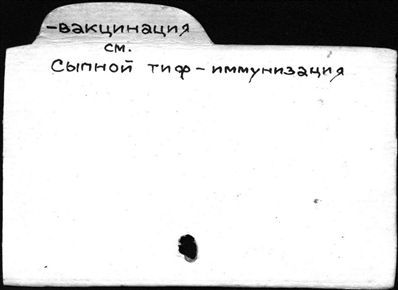 -вакцинация
см.
Сыпной тиф - иммунизация